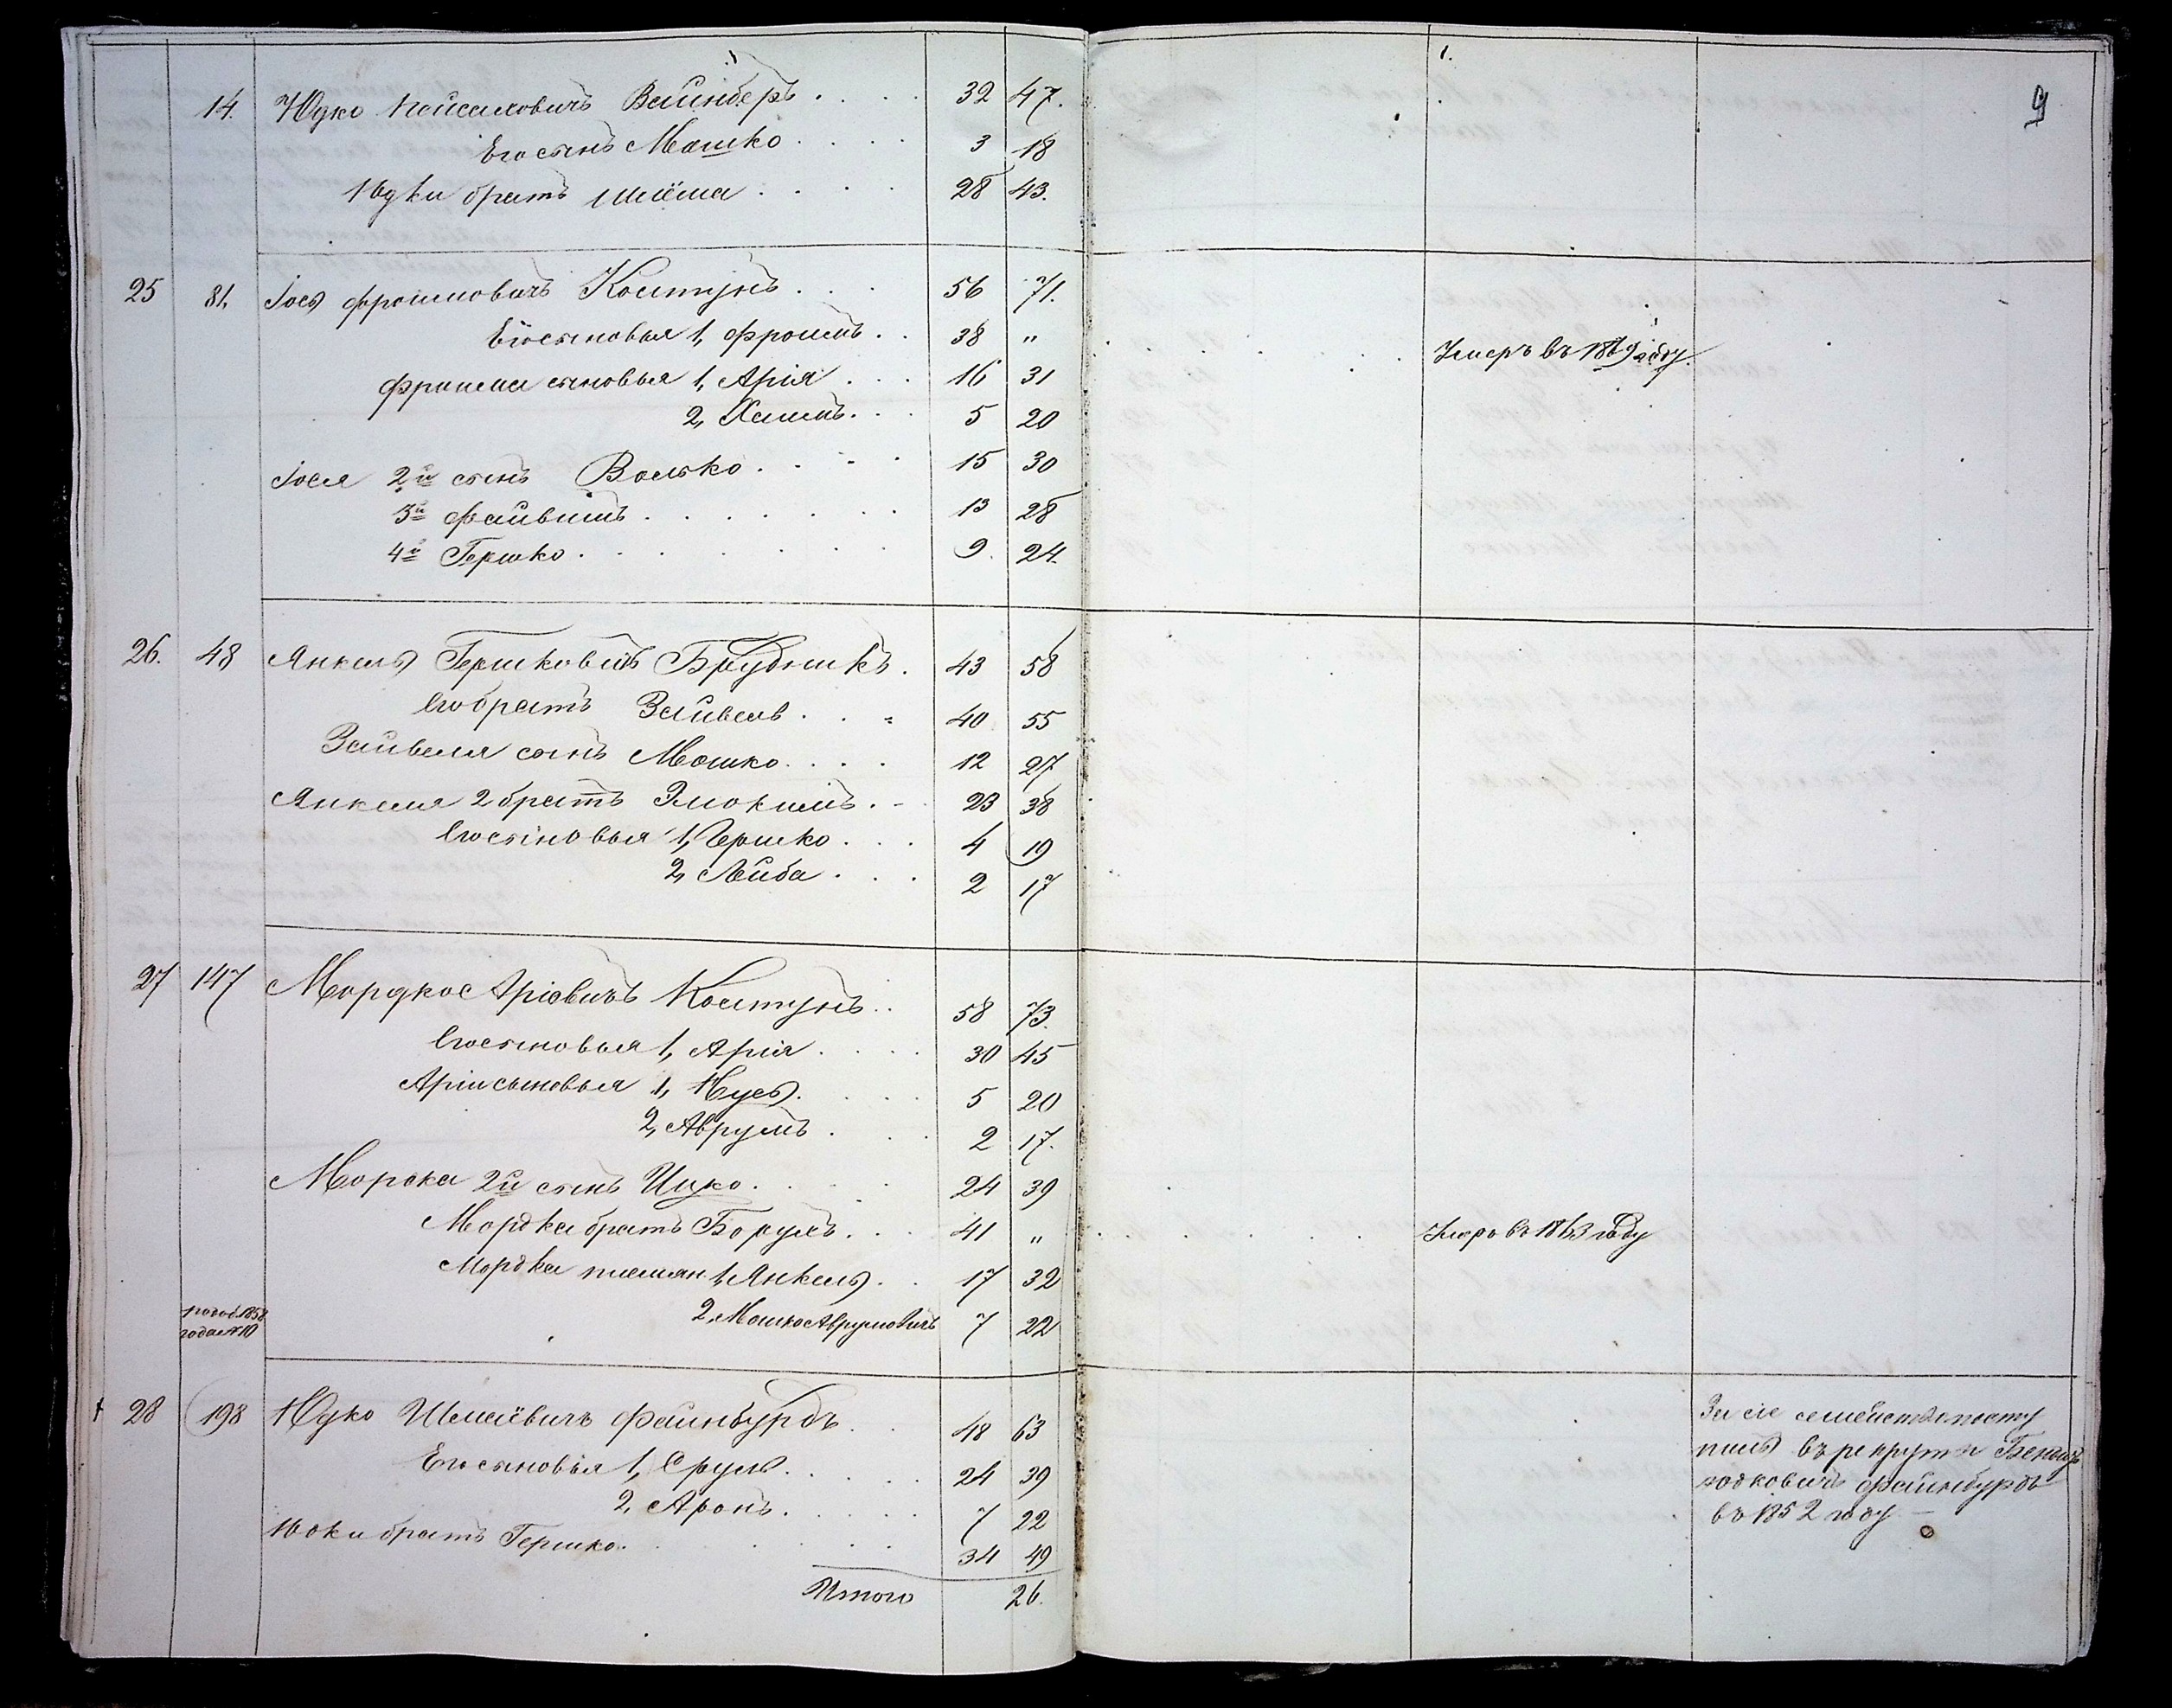 9
14. Юдко Пейсаховичъ Вайнберъ . . . . 32 47.
Его сынъ Мошко . . . . 3 18
Юдки братъ Шлёма . . . . 28 43.
25 81, Іось Фроимовичъ Колтунъ . . . 56 71.
Его сыновья 1, Фроимъ . . 38 " . . . . . . Умеръ въ 1869 году.
Фроима сыновья 1, Арія . . . 16 31
2, Хаимъ . . . 5 20
Іося 2й сынъ Волько . . . . 15 30
3й Файвишъ . . . . . . . 13 28
4й Гершко . . . . . . . 9. 24.
26. 48 Янкель Гершковичъ Брудникъ . 43 58
Его братъ Зайвель . . . 40 55
Зайвеля сынъ Мошко . . . . 12 27
Янкеля 2 братъ Элюкимъ . . 23 38
Его сыновья 1, Гершко . . . 4 19
2, Лейба . . . 2 17
27 147 Мордко Аріевичъ Колтунъ . . 58 73.
Его сыновья 1, Арія . . . . 30 45
Аріи сыновья 1, Нусь . . . . 5 20
2, Аврумъ . . . 2 17.
Мордка 2й сынъ Ицко . . . . 24 39
Мордка братъ Борухъ . . . 41 " . . . . . . Умеръ въ 1863 году
Мордка племян. 1, Янкель . . 17 32
по доп. 1858 года №10 2, Мошко Аврумовичъ 7 22
28 198 Юдко Шмаёвичъ Файнбурдъ . . 48 63
Его сыновья 1, Сруль . . . . . 24 39
2, Аронъ . . . . . 7 22
Юдки братъ Гершко . . . . . . 34 49
Итого 26.
За сіе семейство посту
пилъ въ рекруты
Юдковичъ Файнбурдъ
въ 1852 году —